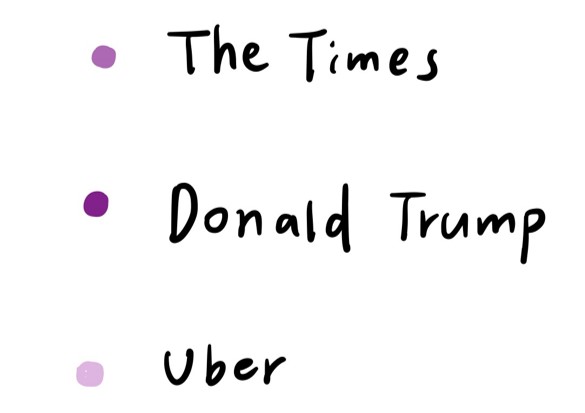 The Times
Donald Trump
Uber